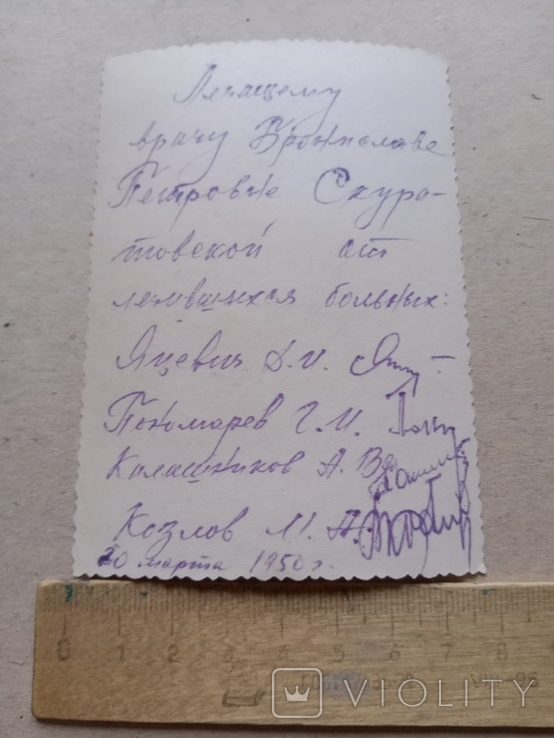 Лечащему
врачу Брониславе
Петровне Скура-
товской от
лечившихся больных:
Яцевич Д. И.
Пономарев Г. И.
Калашников А. В.
Козлов М. А.
20 марта 1950 г.
0 1 2 3 4 5 6 7 8
VIOLITY